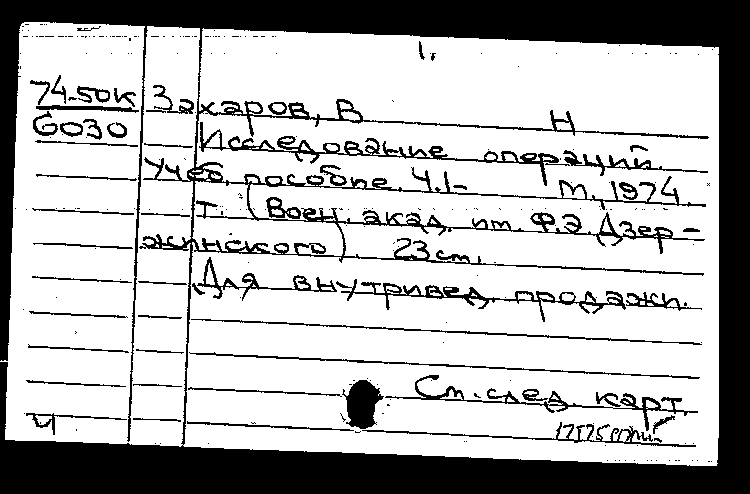 1.
74-50К Захаров, В Н
6030 Исследование операций.
Учеб. пособие. Ч.1- М., 1974.
т. (Воен. акад. им. Ф.Э. Дзер-
жинского). 23 см.
Для внутривед. продажи.
См. след. карт.
Ч